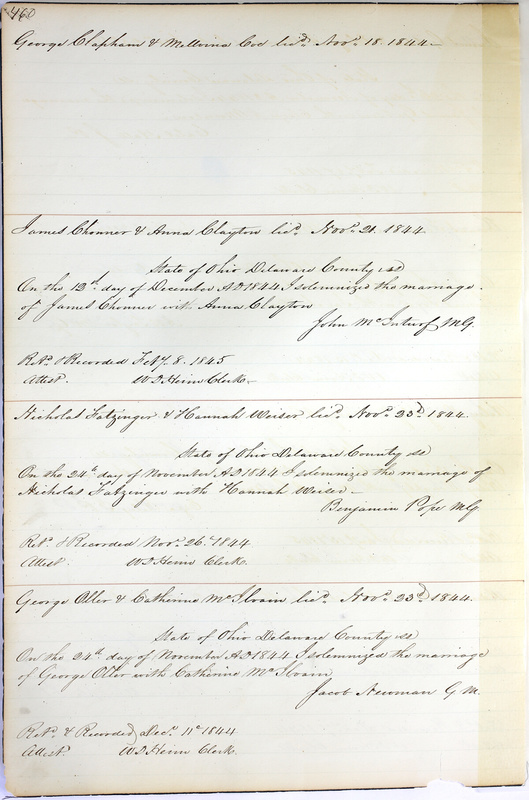 460
George Clapham & Mellvina Coe licd. Novr. 18. 1844
James Chonner & Anna Clayton licd. Novr. 21. 1844
State of Ohio Delaware County ss
On the day of December AD 1844 I solemnized the marriage
of James Chonner with Anna Clayton
John McInturf M.G.
Retd. & Recorded Feby. 8. 1845
Attest. W D Heim Clerk
Nicholas Fatzinger & Hannah Weiser licd. Novr. 23d. 1844.
State of Ohio Delaware County ss
On the 24th day of November AD 1844 I solemnized the marriage of
Nicholas Fatzinger with Hannah Weiser
Benjamin Pope M.G.
Retd. & Recorded Novr. 26. 1844
Attest W D Heim Clerk.
George Oller & Catherine McIlvain licd. Novr. 23d. 1844.
State of Ohio Delaware County ss
On the 24th day of November AD 1844 I solemnized the marriage
of George Oller with Catherine McIlvain
Jacob Newman G.M.
Retd. & Recorded Decr. 11th 1844
Attest. W D Heim Clerk.